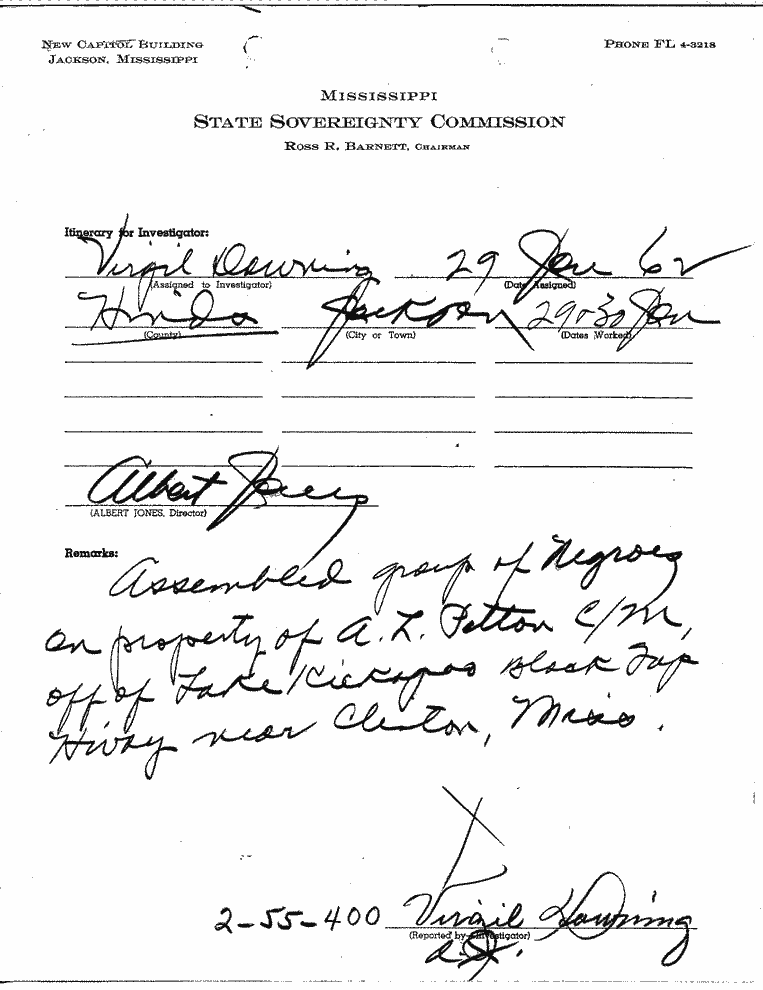 NEW CAPITOL BUILDING
JACKSON, MISSISSIPPI
PHONE FL 4-3218
MISSISSIPPI
STATE SOVEREIGNTY COMMISSION
ROSS R. BARNETT, CHAIRMAN
Itinerary for Investigator:
Virgil Downing 29 Jan 62
(Assigned to Investigator) (Date Assigned)
Hinds Jackson 29-30 Jan
(County) (City or Town) (Dates Worked)
Albert Jones
(ALBERT JONES, Director)
Remarks:
Assembled group of Negroes
on property of A. L. C/M,
off of Lake Kickapoo Black Top
Hiway near Clinton, Miss.
2-55-400 Virgil Downing
(Reported by Investigator)